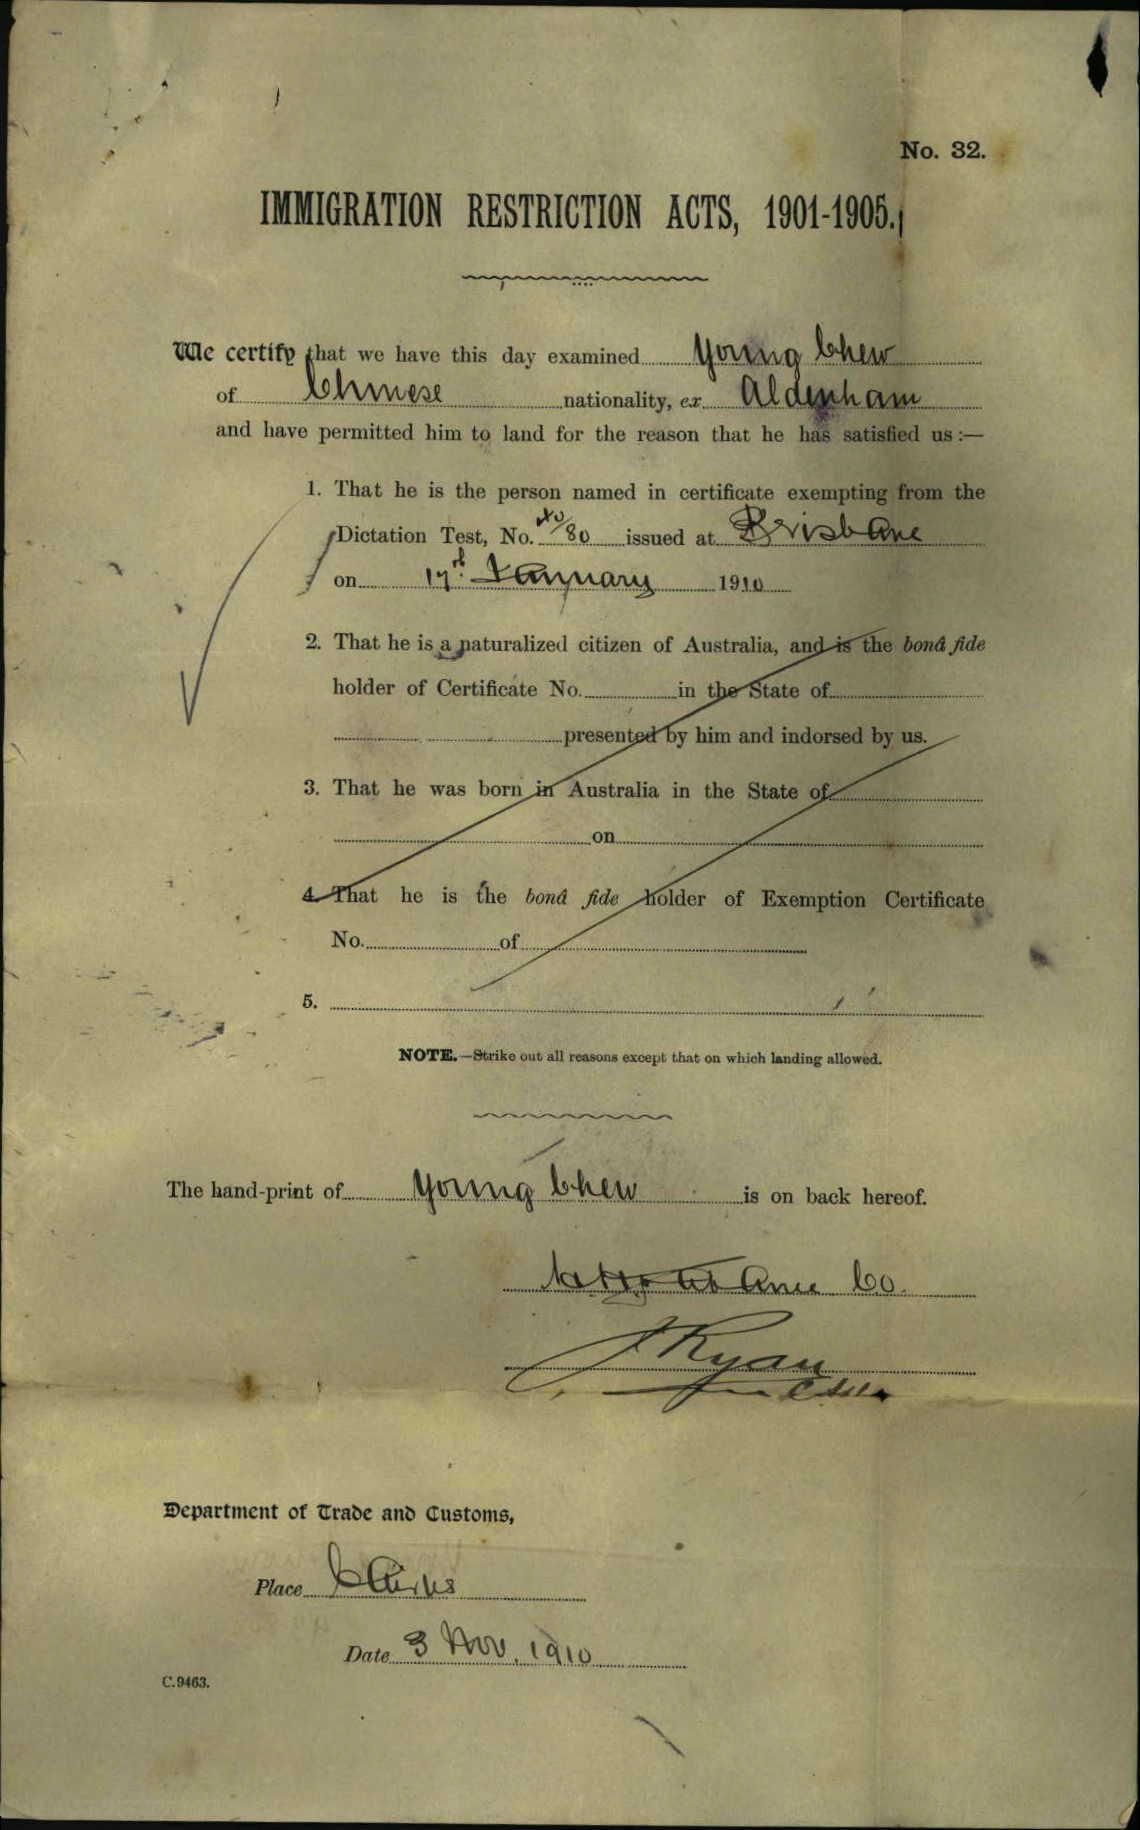 No. 32.
IMMIGRATION RESTRICTION ACTS, 1901-1905.
We certify that we have this day examined Young Chew
of Chinese nationality, ex Aldenham
and have permitted him to land for the reason that he has satisfied us :—
1. That he is the person named in certificate exempting from the
Dictation Test, No. /80 issued at Brisbane
on 17th January 1910
2. That he is a naturalized citizen of Australia, and is the bonâ fide
holder of Certificate No. in the State of
presented by him and indorsed by us.
3. That he was born in Australia in the State of
on
4. That he is the bonâ fide holder of Exemption Certificate
No. of
5.
NOTE.—Strike out all reasons except that on which landing allowed.
The hand-print of Young Chew is on back hereof.
Co.
J Ryan
Department of Trade and Customs,
Place Cairns
Date 3 Nov. 1910
C.9463.